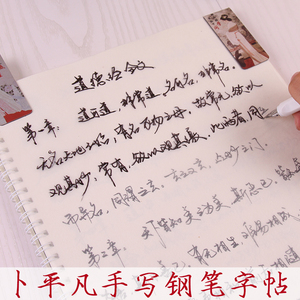 道德经全文
第一章:
道可道,非常道,名可名,非常名。
无名天地之始,有名万物之母,故常无,欲以
观其妙,常有,欲以观其徼,此两者,同
而异名,同谓之玄,玄之又玄,众妙之门。
第二章
天下皆知美之为美,斯恶已,皆
有无相生,难易相成
卜平凡手写钢笔字帖